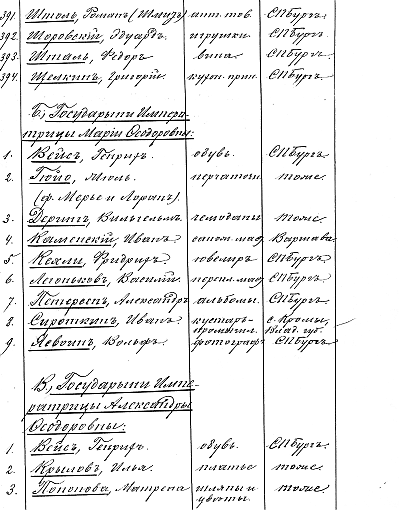 391. Штоль, Романъ (Шмузъ) апт. тов. СПбургъ
392. Шоровскій, Эдуардъ игрушки СПбургъ
393. Шталь, Ѳедоръ вина СПбургъ.
394. Щелкинъ, Григорій. кухон. прин. СПбургъ
Б., Государыни Импера-
трицы Маріи Ѳеодоровны:
1. Вейсъ, Генрихъ. обувь. СПбургъ
2. Гюйо, Мюль. перчаточн. тоже
(ф. Мерье и Лоранъ).
3. Дерингъ, Вильгельмъ чемоданы тоже
4. Каменскій, Иванъ сапож. маст. Варшава.
5. Кехли, Фридрихъ ювелиръ СПбургъ
6. Леоньковъ, Василій. перепл. маст. СПбургъ.
7. Петерсенъ, Александръ альбомы. СПбургъ.
8. Сироткинъ, Иванъ кустарь- с. Кромы,
промышл. Влад. губ.
9. Яевоинъ, Вольфъ. фотографъ СПбургъ
В., Государыни Импе-
ратрицы Александры
Ѳеодоровны:
1. Вейсъ, Генрихъ. обувь. СПбургъ
2. Крыловъ, Илья. платье тоже
3. Попонова, Матрена шляпы и тоже
цвѣты.